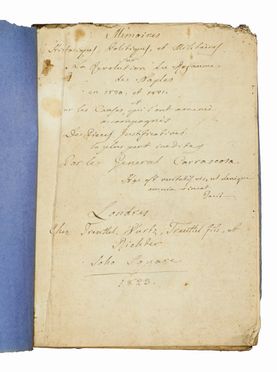 Mémoires
Historiques, Politiques, et Militaires
sur
La Révolution du Royaume
de Naples
en 1820, et 1821.
et
sur les Causes qui l'ont amenée
accompagnés
Des Pièces Justificatives
la plus part inédites
Par le Général Carrascosa.
Hæc est veritatis vis, ut denique
omnia vincat.
Londres
Chez Treuttel, Wurtz, Treuttel fils, et
Richter
Soho Square
1823.